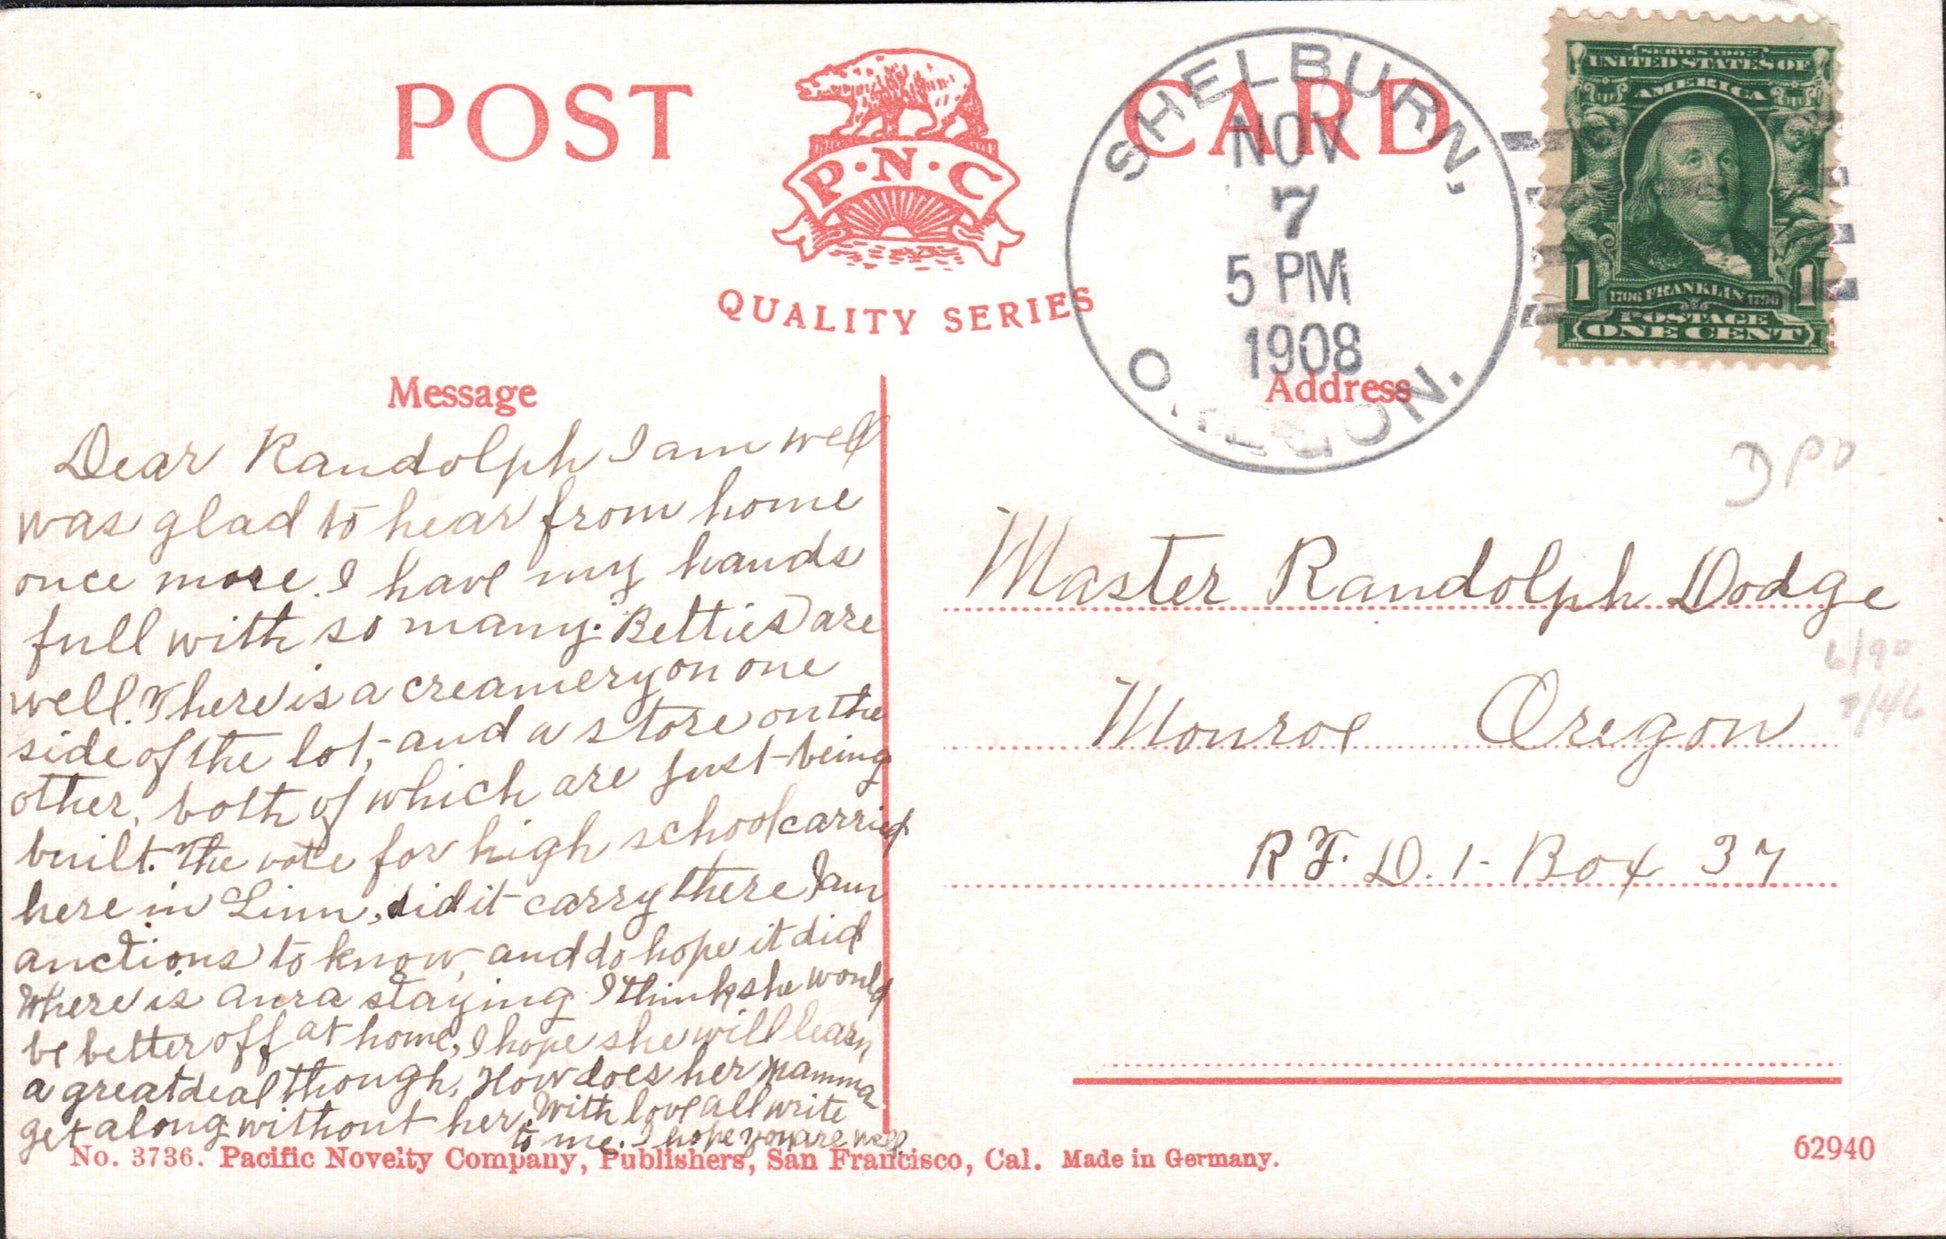 POST CARD
P·N·C
QUALITY SERIES
SHELBURN,
NOV
7
5 PM
1908
SERIES 1902
UNITED STATES OF
AMERICA
1 1
1706 FRANKLIN 1790
POSTAGE
ONE CENT
Message
Dear Randolph I am well
was glad to hear from home
once more. I have my hands
full with so many. Betties are
well. There is a creamery on one
side of the lot, and a store on the
other, both of which are just being
built. The vote for high school carried
here in Linn, did it carry there I am
anctions to know, and do hope it did
Where is Aura staying I think she would
be better off at home, I hope she will learn
a great deal though. How does her mamma
get along without her. With love all write
to me. I hope you are well.
Address
DPO
Master Randolph Dodge
Monroe Oregon
6/90
7/46
R F. D. 1 - Box 37
No. 3736. Pacific Novelty Company, Publishers, San Francisco, Cal. Made in Germany.
62940